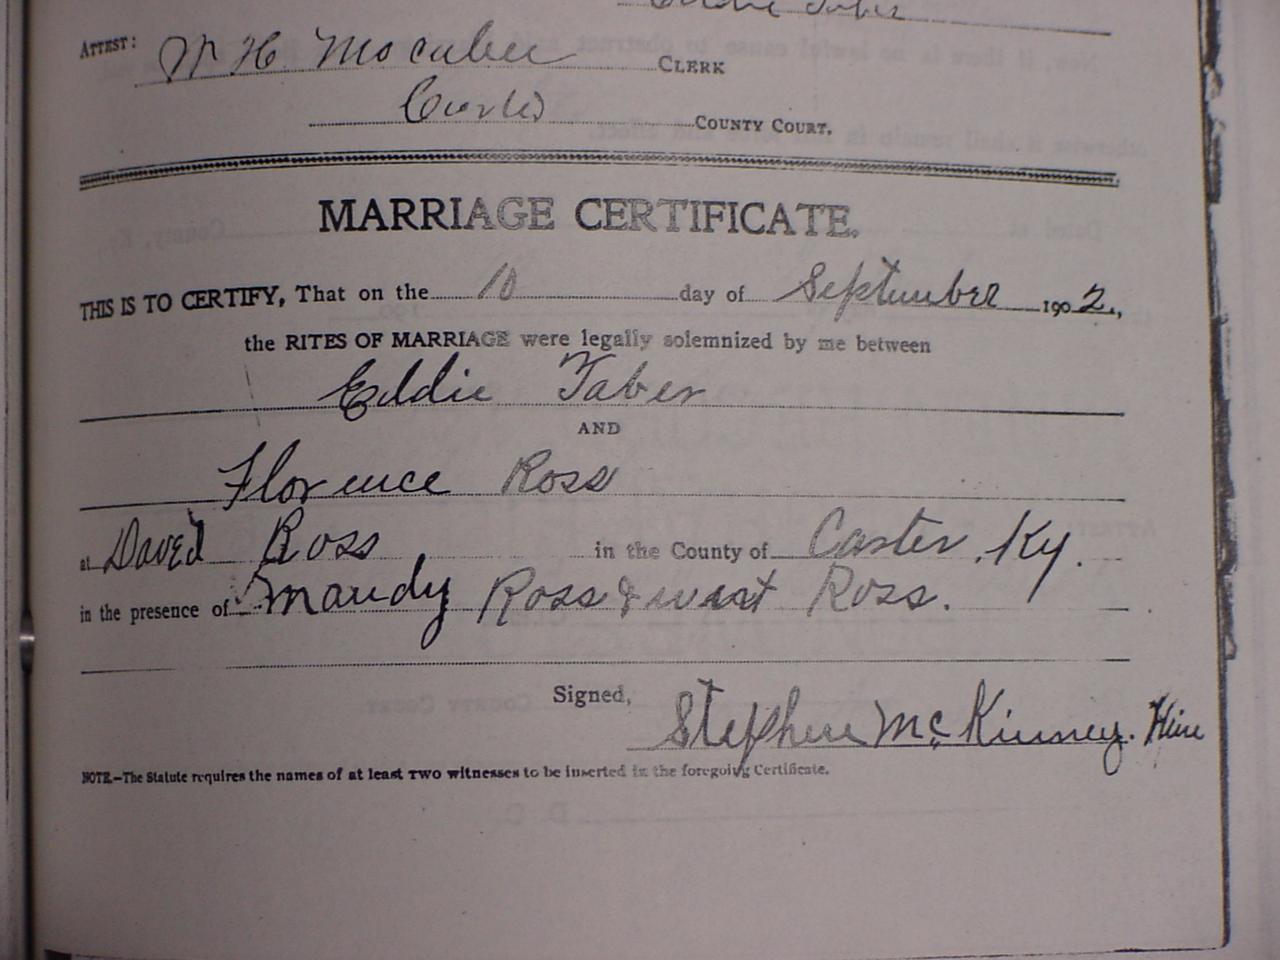 Eddie Taber
ATTEST: W H McCabee CLERK
Carter COUNTY COURT.
MARRIAGE CERTIFICATE.
THIS IS TO CERTIFY, That on the 10 day of September 1902.,
the RITES OF MARRIAGE were legally solemnized by me between
Eddie Taber
AND
Florence Ross
at David Ross in the County of Carter, Ky.
in the presence of Mandy Ross & Ross.
Signed,
Stephen McKinney.
NOTE.—The Statute requires the names of at least TWO witnesses to be inserted in the foregoing Certificate.